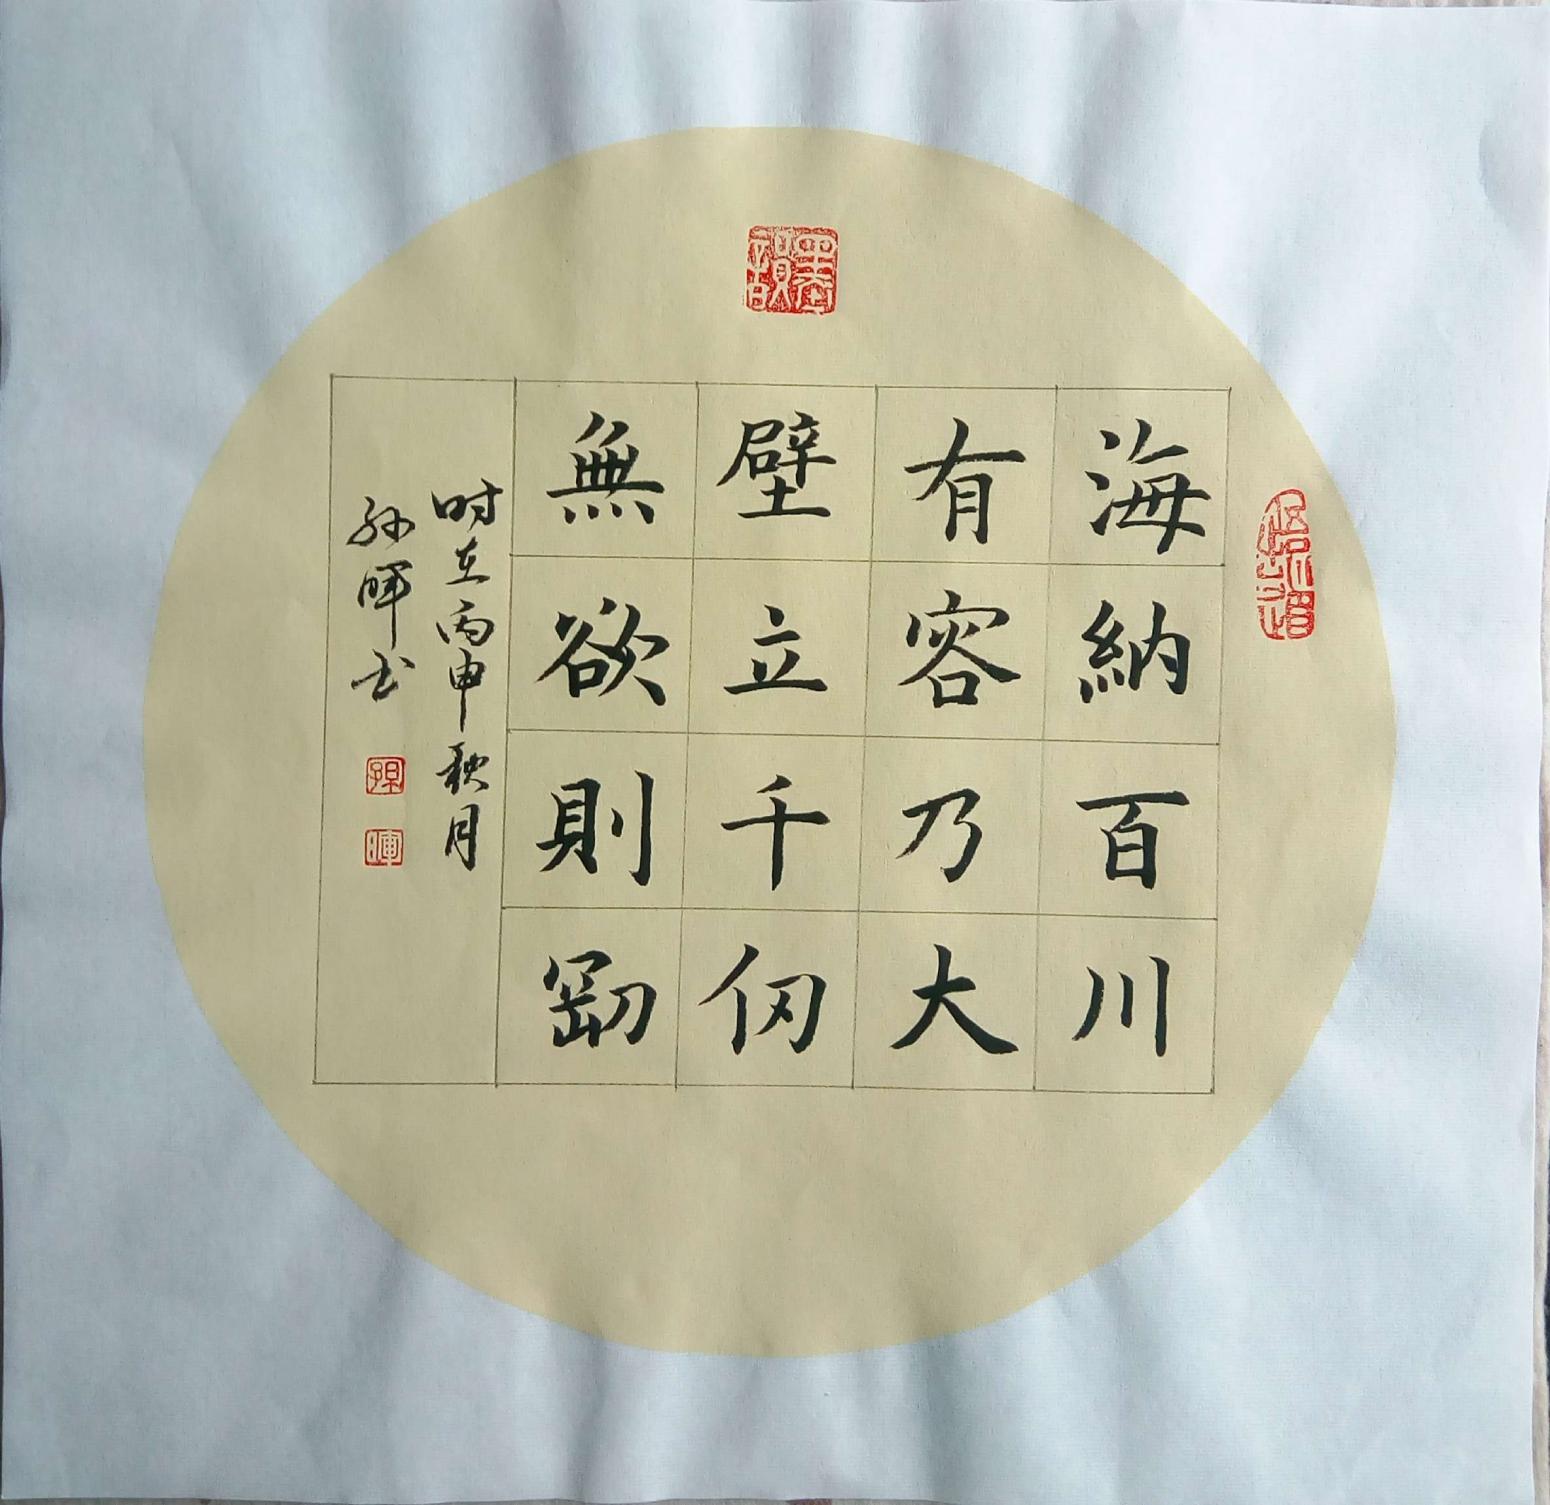 海納百川
有容乃大
壁立千仞
無欲則剛
时在丙申秋月
孙晖书
孫
暉